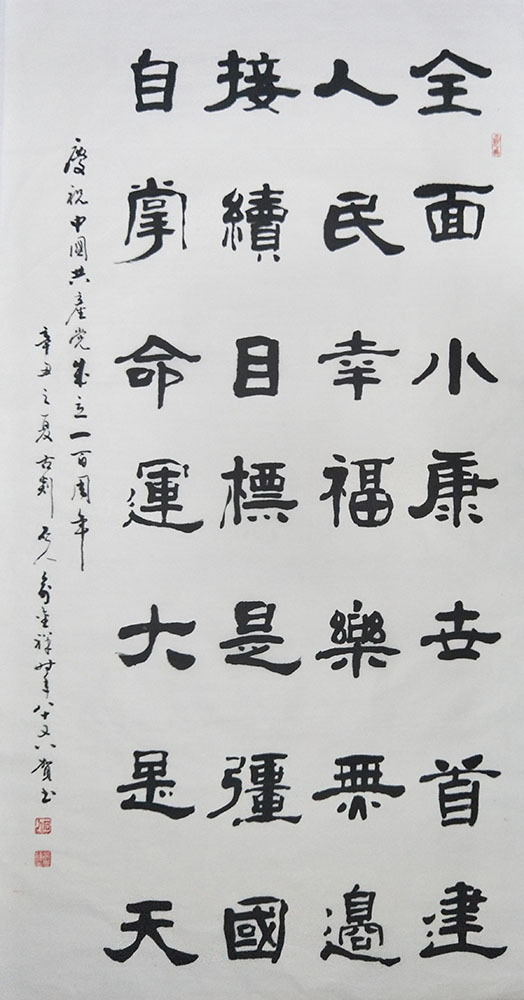 全面小康世首建
人民幸福樂無邊
接續目標是彊國
自掌命運大是天
慶祝中國共産党成立一百周年
辛丑之夏古剡石人俞金祥時年八十又八賀書